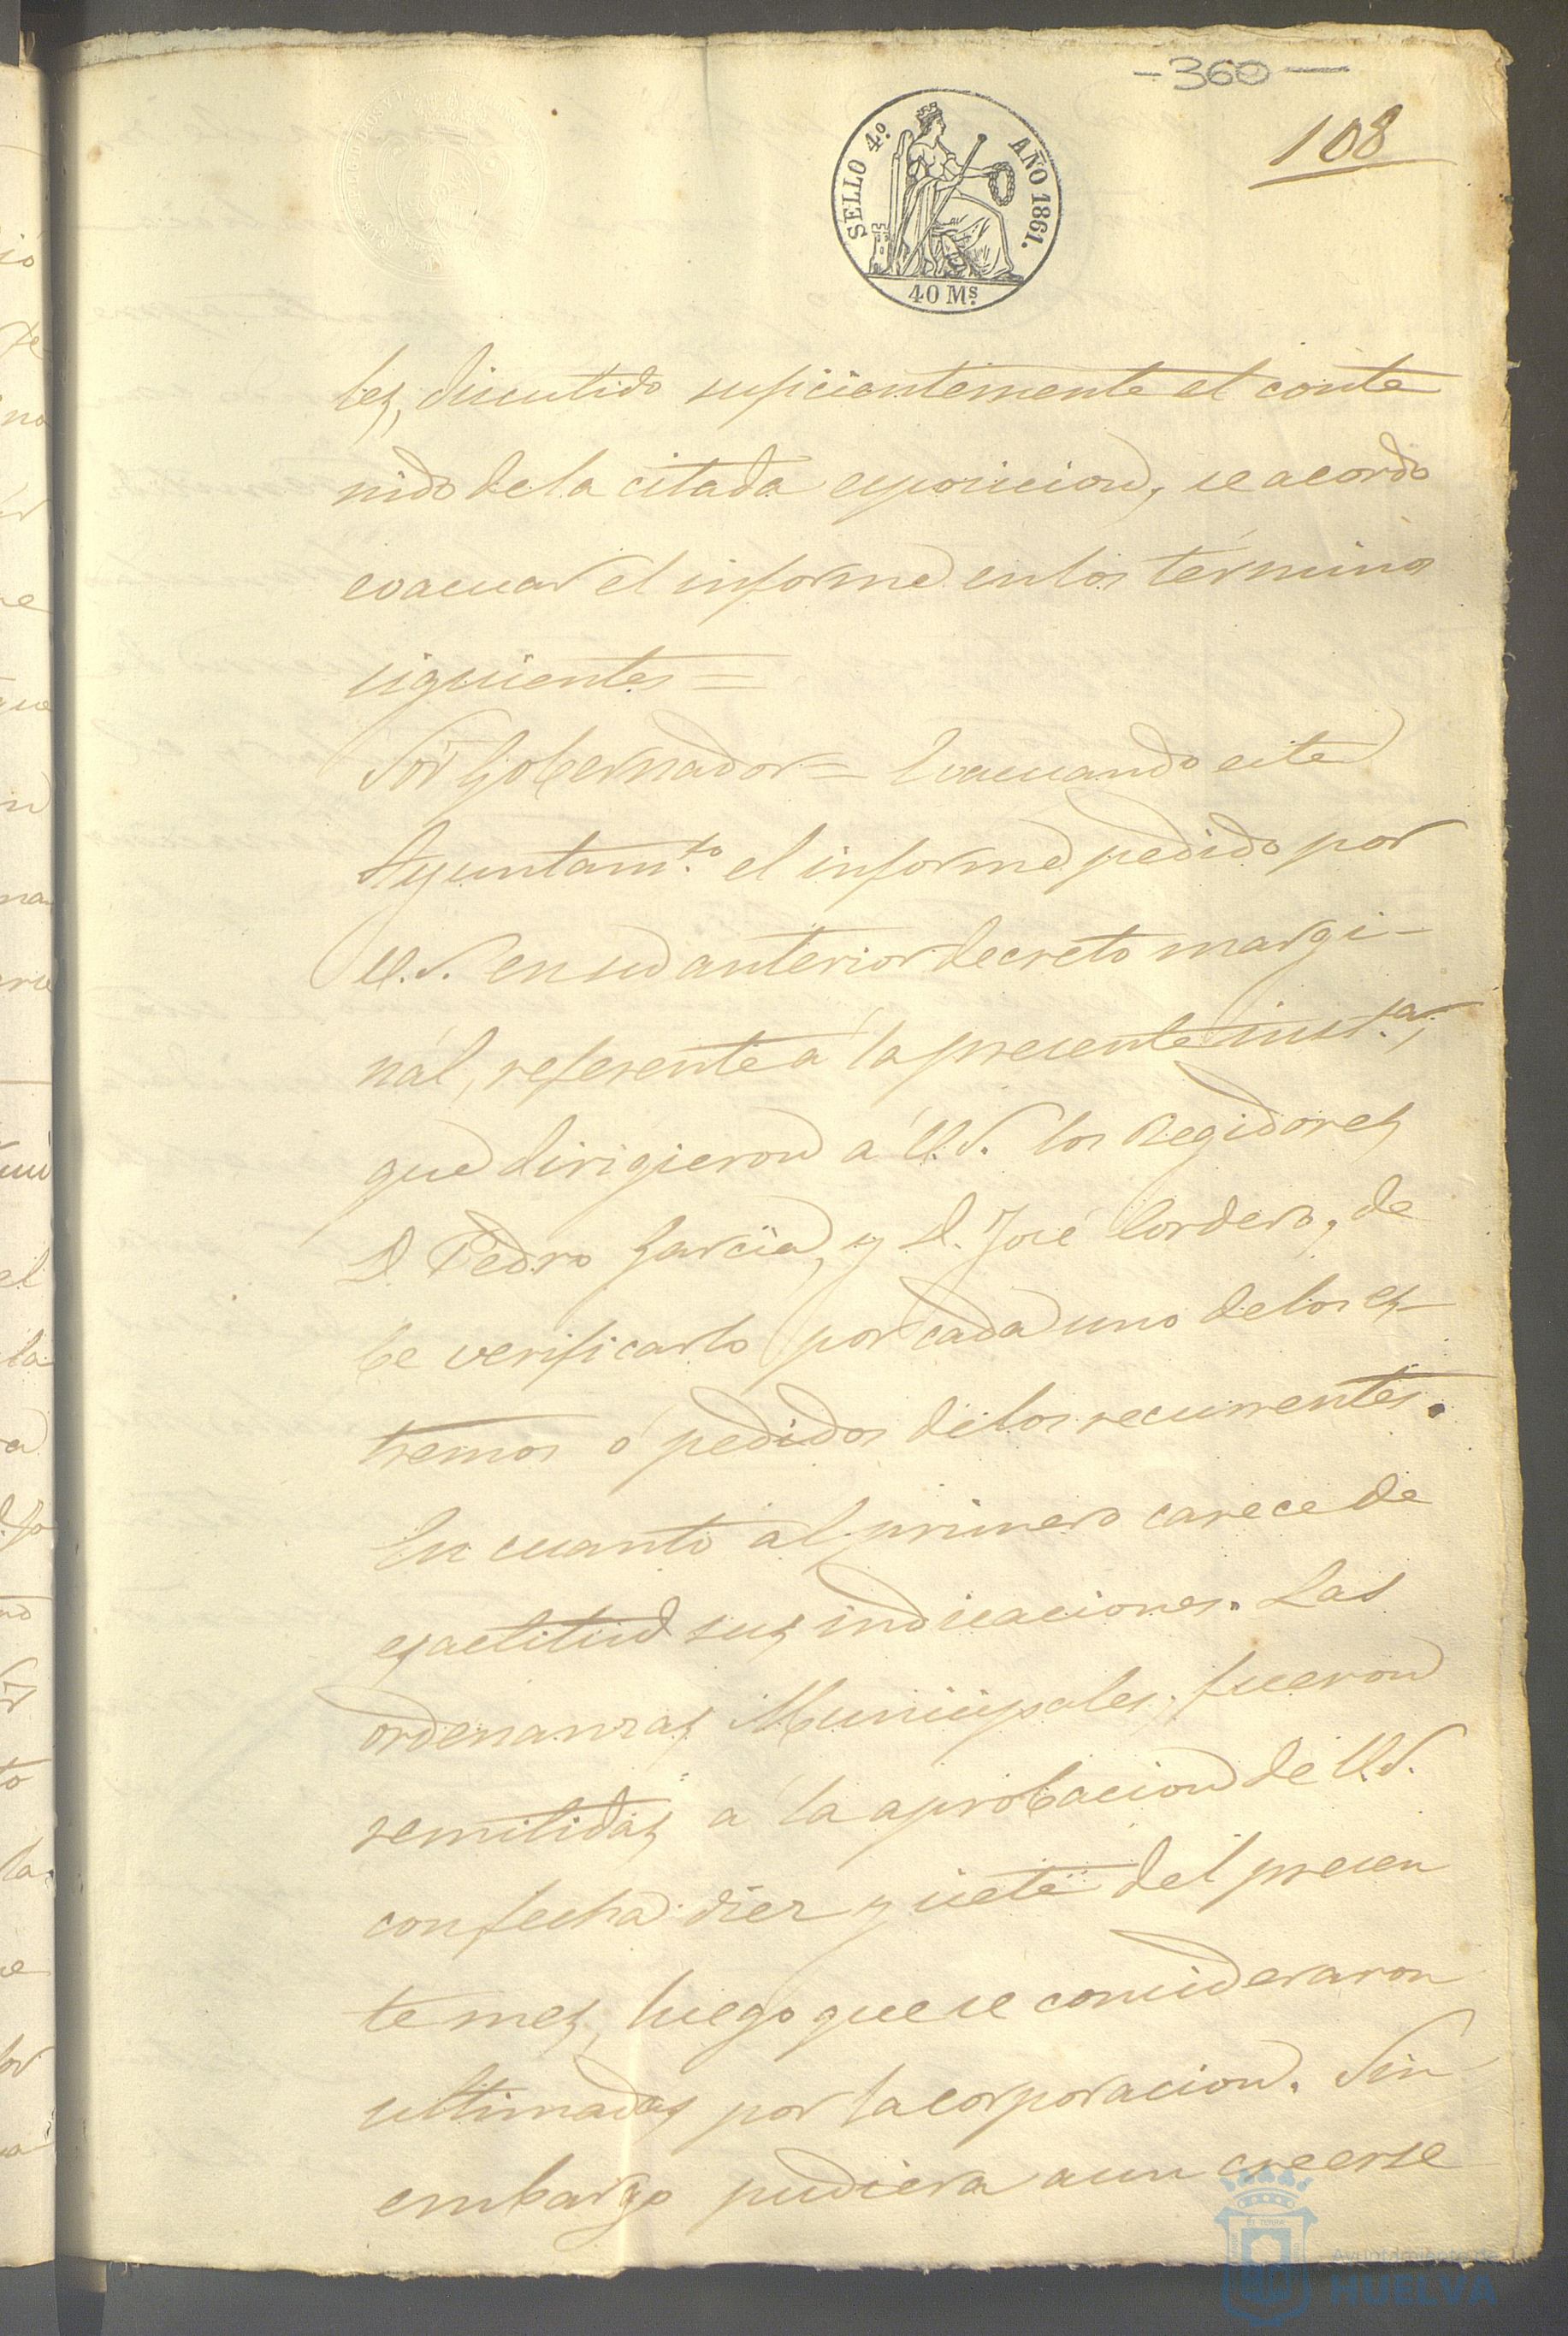 -360-
108
SELLO 4.º AÑO 1861.
40 Ms.
les, discutido suficientemente el conte
nido de la citada esposicion, se acordo
evacuar el informe en los términos
siguientes=
Sor Gobernador= Evacuando este
Ayuntam.to el informe pedido por
V.S. en su anterior decreto margi-
nál, referente á la presente inst.a,
que dirigieron á V.S. los Regidores
D Pedro Garcia, y D. José Cordero, de
be verificarlo por cada uno de los es-
tremos ó pedidos de los recurrentes.
En cuanto al primero carece de
esactitud sus indicaciones. Las
ordenanzas Municipales, fueron
remitidas á la aprobacion de V.S.
con fecha diez y siete del presen
te mes, luego que se consideraron
ultimadas por la corporacion. Sin
embargo pudiera aun creerse
Ayuntamiento de
HUELVA